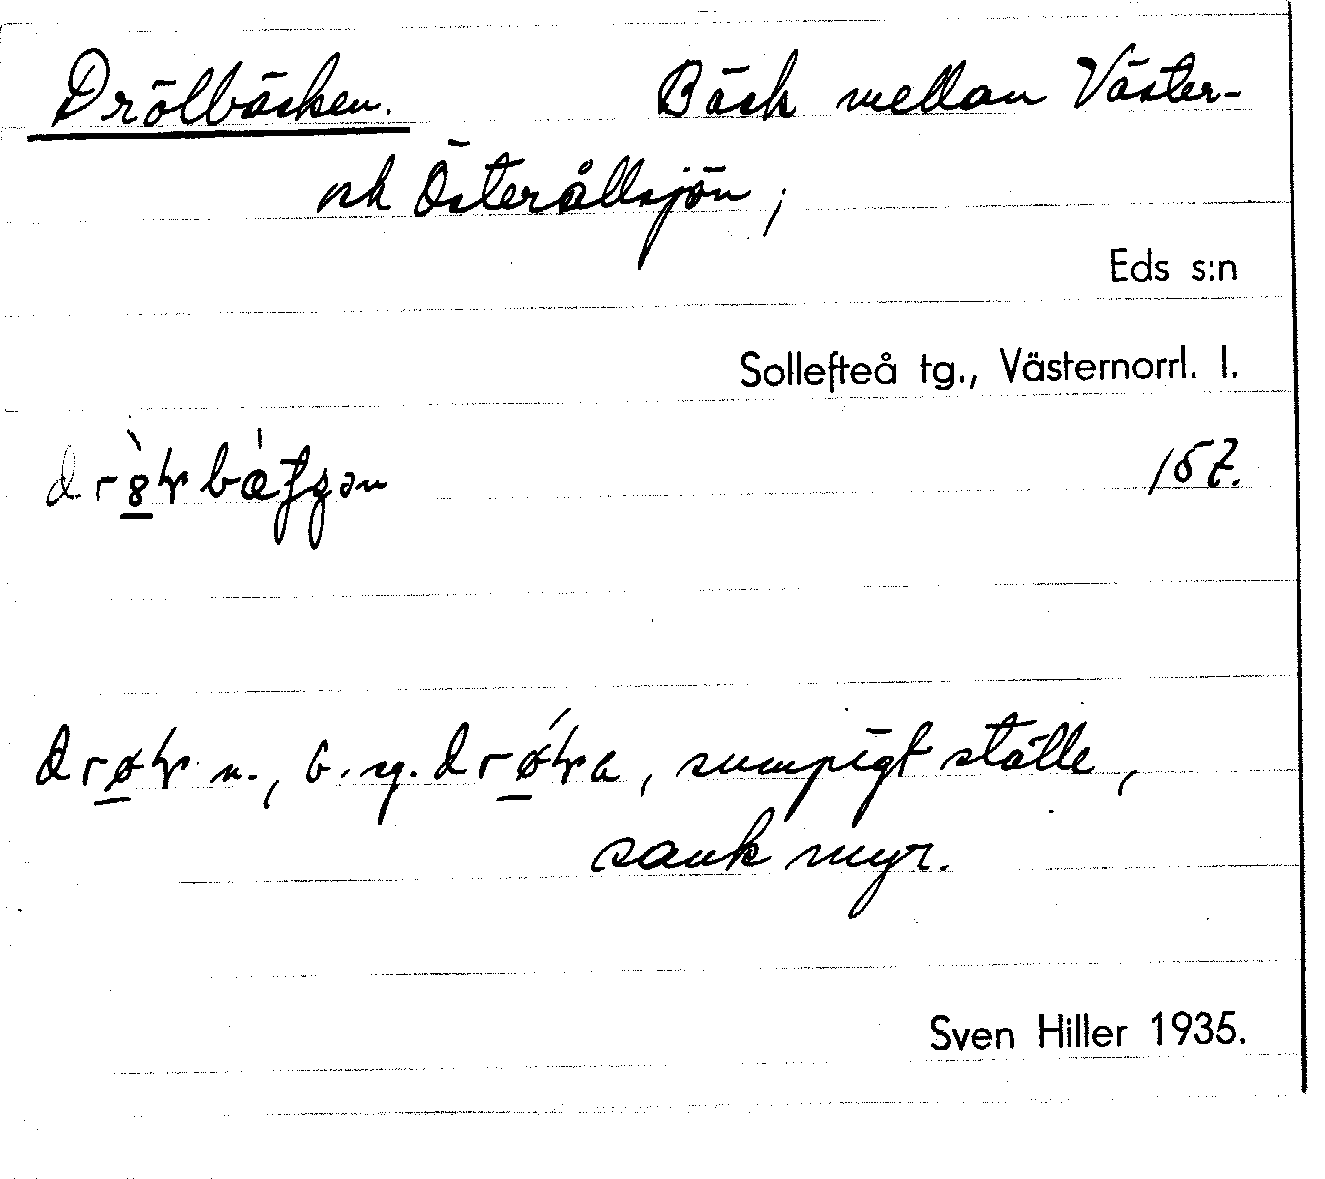 Drölbäcken. Bäck mellan Väster-
och Österållsjön;
Eds s:n
Sollefteå tg., Västernorrl. l.
157.
n., b. sg. , sumpigt ställe,
sank myr.
Sven Hiller 1935.